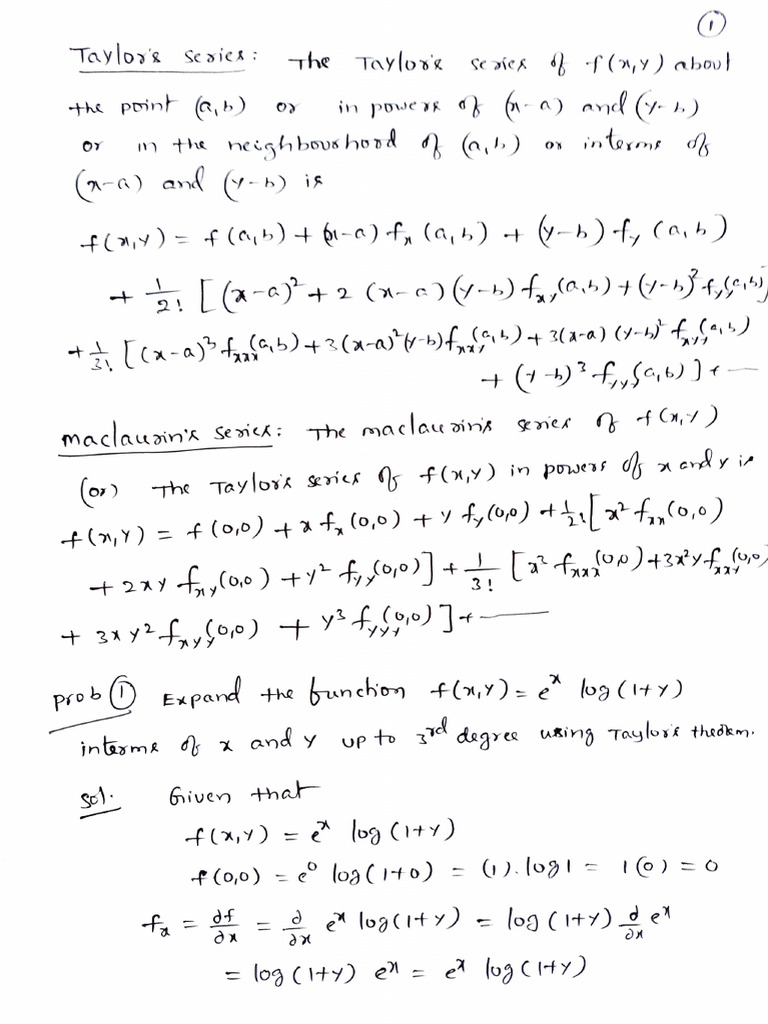 ①
Taylor's series: The Taylor's series of f(x,y) about
the point (a,b) or in powers of (x-a) and (y-b)
or in the neighbourhood of (a,b) or interms of
(x-a) and (y-b) is
f(x,y) = f(a,b) + (x-a) fₓ (a,b) + (y-b) f_y (a,b)
+ 1/2! [(x-a)² + 2 (x-a) (y-b) f_xy(a,b) + (y-b)² f_yy(a,b)]
+ 1/3! [(x-a)³ f_xxx(a,b) + 3(x-a)²(y-b) f_xxy(a,b) + 3(x-a) (y-b)² f_xyy(a,b)
+ (y-b)³ f_yyy(a,b)] + —
maclaurin's series: The maclaurin's series of f(x,y)
(or) The Taylor's series of f(x,y) in powers of x and y is
f(x,y) = f(0,0) + x fₓ(0,0) + y f_y(0,0) + 1/2! [x² f_xx(0,0)
+ 2xy f_xy(0,0) + y² f_yy(0,0)] + 1/3! [x³ f_xxx(0,0) + 3x²y f_xxy(0,0)
+ 3xy² f_xyy(0,0) + y³ f_yyy(0,0)] + —
prob ① Expand the function f(x,y) = eˣ log(1+y)
interms of x and y up to 3rd degree using Taylor's theorem.
Sol. Given that
f(x,y) = eˣ log(1+y)
f(0,0) = e⁰ log(1+0) = (1).log1 = 1(0) = 0
fₓ = ∂f/∂x = ∂/∂x eˣ log(1+y) = log(1+y) ∂/∂x eˣ
= log(1+y) eˣ = eˣ log(1+y)